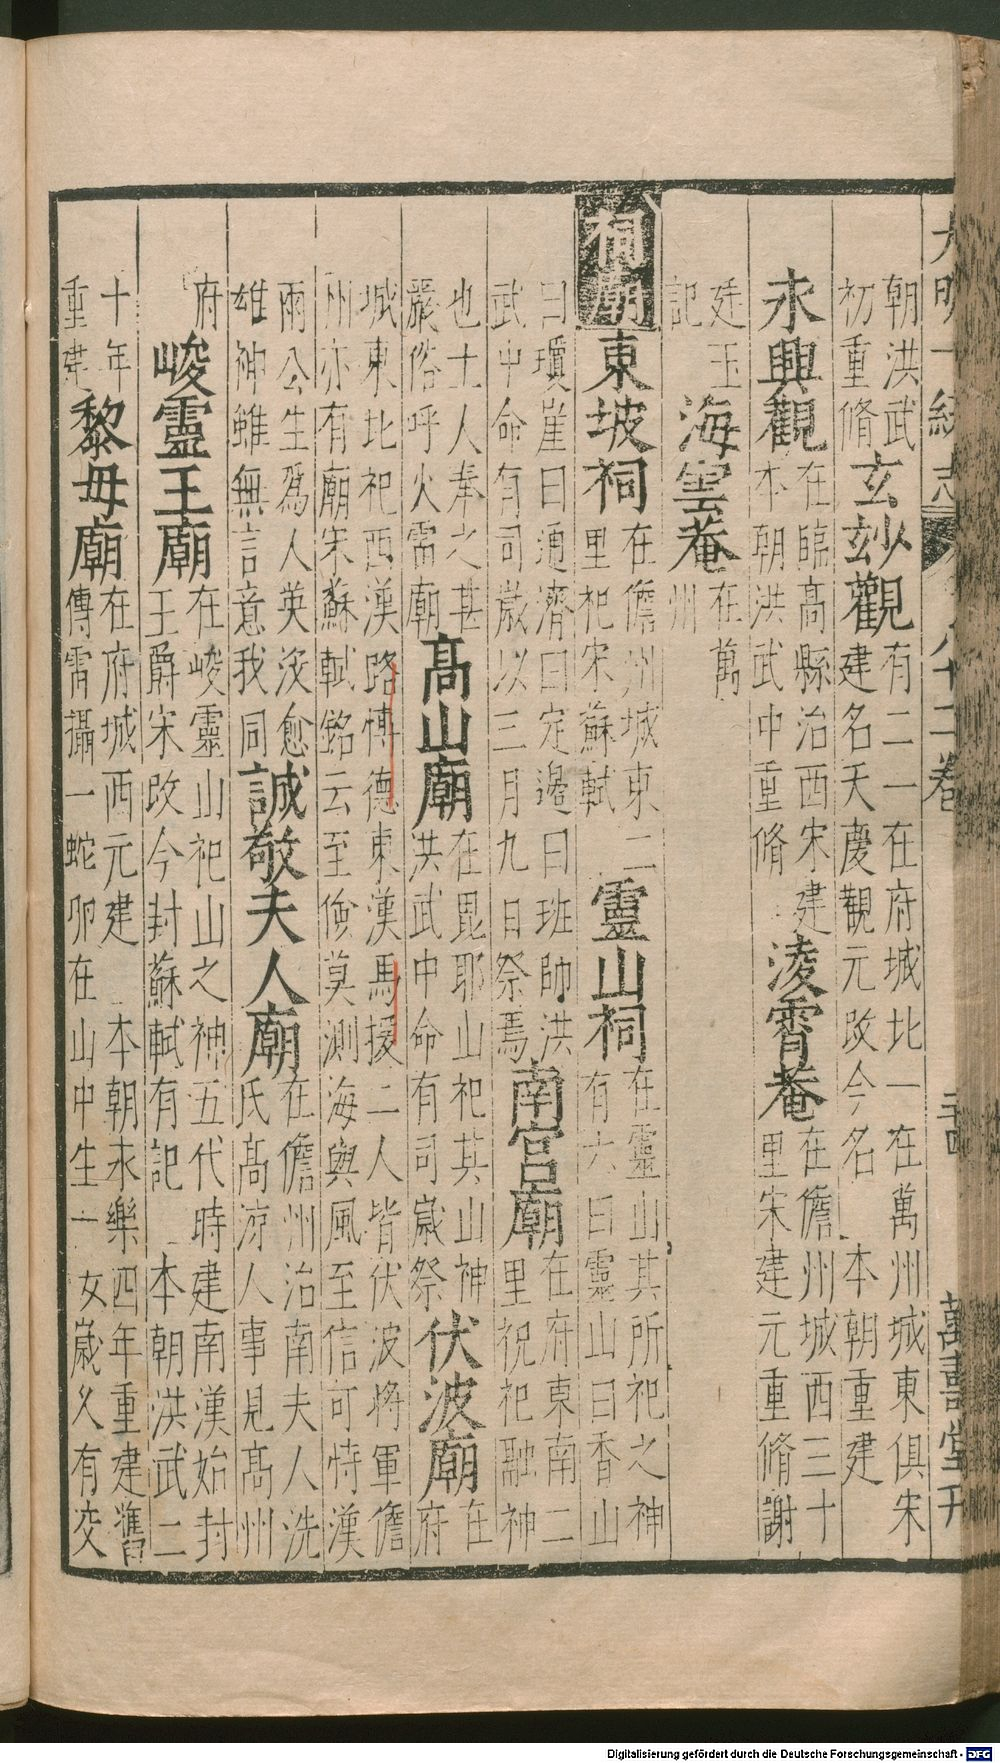 大明一統志 八十二卷 二十四 萬壽堂刊
朝洪武
初重脩玄妙觀有二一在府城北一在萬州城東俱宋
建名天慶觀元改今名 本朝重建
永興觀在臨高縣治西宋建
本朝洪武中重脩淩霄菴在儋州城西三十
里宋建元重脩謝
廷玉
記海雲菴在萬
州
祠廟東坡祠在儋州城東二
里祀宋蘇軾靈山祠在靈山其所祀之神
有六曰靈山曰香山
曰瓊崖曰通濟曰定邊曰班帥洪
武中命有司歲以三月九日祭焉南宮廟在府東南二
里祝祀融神
也土人奉之甚
嚴俗呼火雷廟高山廟在毘耶山祀其山神
洪武中命有司歲祭伏波廟在
府
城東北祀西漢路博德東漢馬援二人皆伏波將軍儋
州亦有廟宋蘇軾銘云至險莫測海與風至信可恃漢
兩公生爲人英沒愈
雄神雖無言意我同誠敬夫人廟在儋州治南夫人洗
氏高凉人事見高州
府
峻靈王廟在峻靈山祀山之神五代時建南漢始封
王爵宋改今封蘇軾有記 本朝洪武二
十年
重建黎母廟在府城西元建 本朝永樂四年重建舊
傳雷攝一蛇卵在山中生一女歲久有交
Digitalisierung gefördert durch die Deutsche Forschungsgemeinschaft - DFG